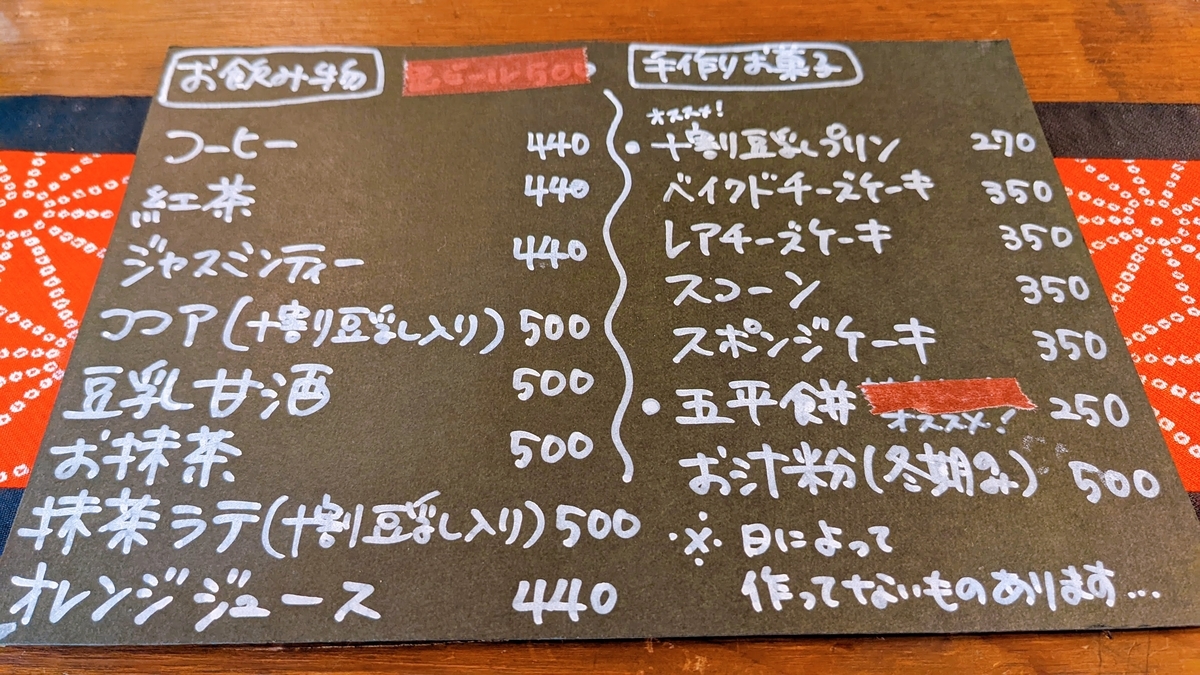 お飲み物
ビール 500
コーヒー 440
紅茶 440
ジャスミンティー 440
ココア(十割り豆乳入り) 500
豆乳甘酒 500
お抹茶 500
抹茶ラテ(十割り豆乳入り) 500
オレンジジュース 440
手作りお菓子
オススメ!
・十割り豆乳プリン 270
ベイクドチーズケーキ 350
レアチーズケーキ 350
スコーン 350
スポンジケーキ 350
・五平餅 250
オススメ!
お汁粉(冬期のみ) 500
※日によって
作ってないものあります…